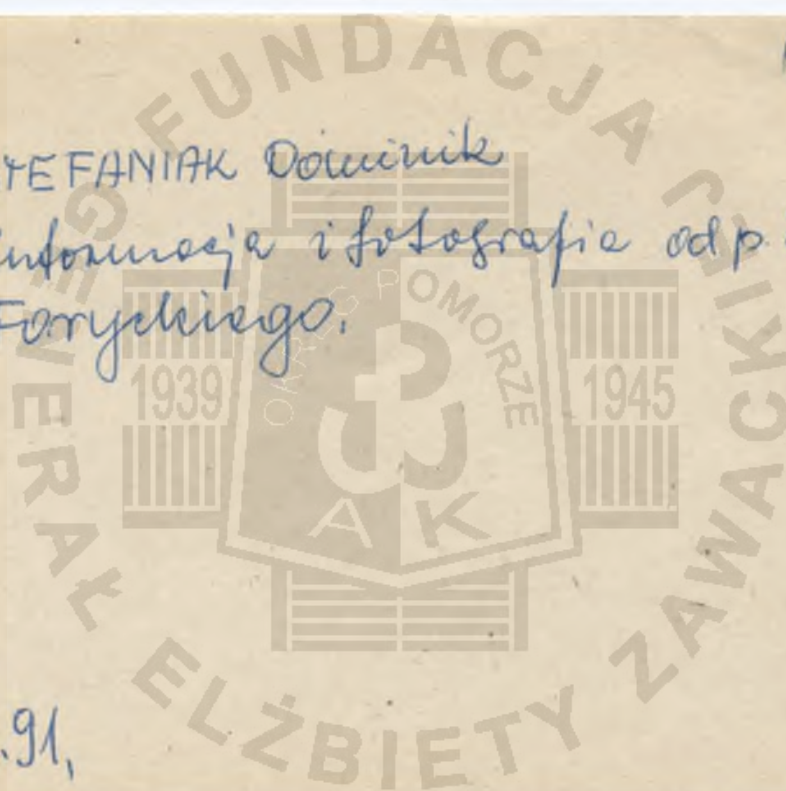 TEFANIAK Dominik
informacja i fotografia od p.
Foryckiego.
.91,
FUNDACJA GENERAŁ ELŻBIETY ZAWACKIEJ
OKRĘG POMORZE
1939 1945
A K